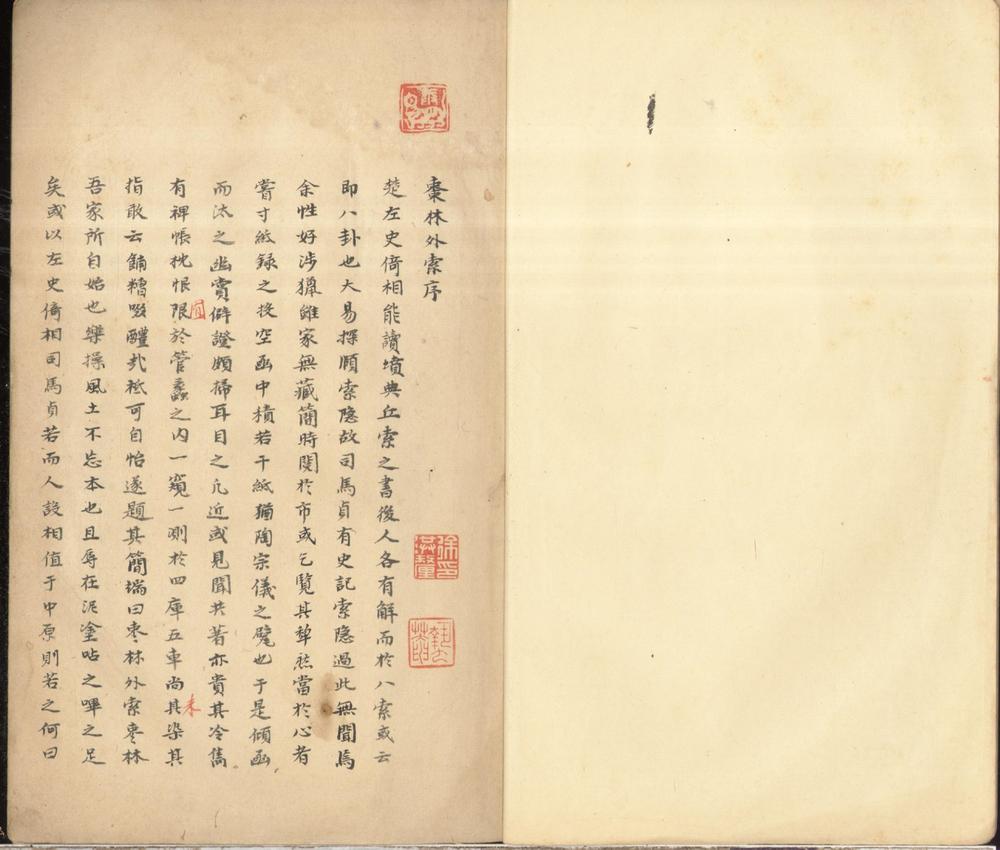 棗林外索序
楚左史倚相能讀墳典丘索之書後人各有解而於八索或云
即八卦也大易探賾索隱故司馬貞有史記索隱過此無聞焉
余性好涉獵雖家無藏簡時閱於市或乞覽其犖然當於心者
嘗寸紙錄之投空函中積若干紙猶陶宗儀之甓也于是傾函
而汰之幽賞僻證頗掃耳目之凡近或見聞共著亦貴其冷雋
有裨帳枕恨限於管蠡之內一窺一測於四庫五車尚其染其
宜
未
指敢云餔糟啜醴哉祗可自怡遂題其簡端曰枣林外索枣林
吾家所自始也樂操風土不忘本也且辱在泥塗呫之嗶之足
矣或以左史倚相司馬貞若而人設相值于中原則若之何曰